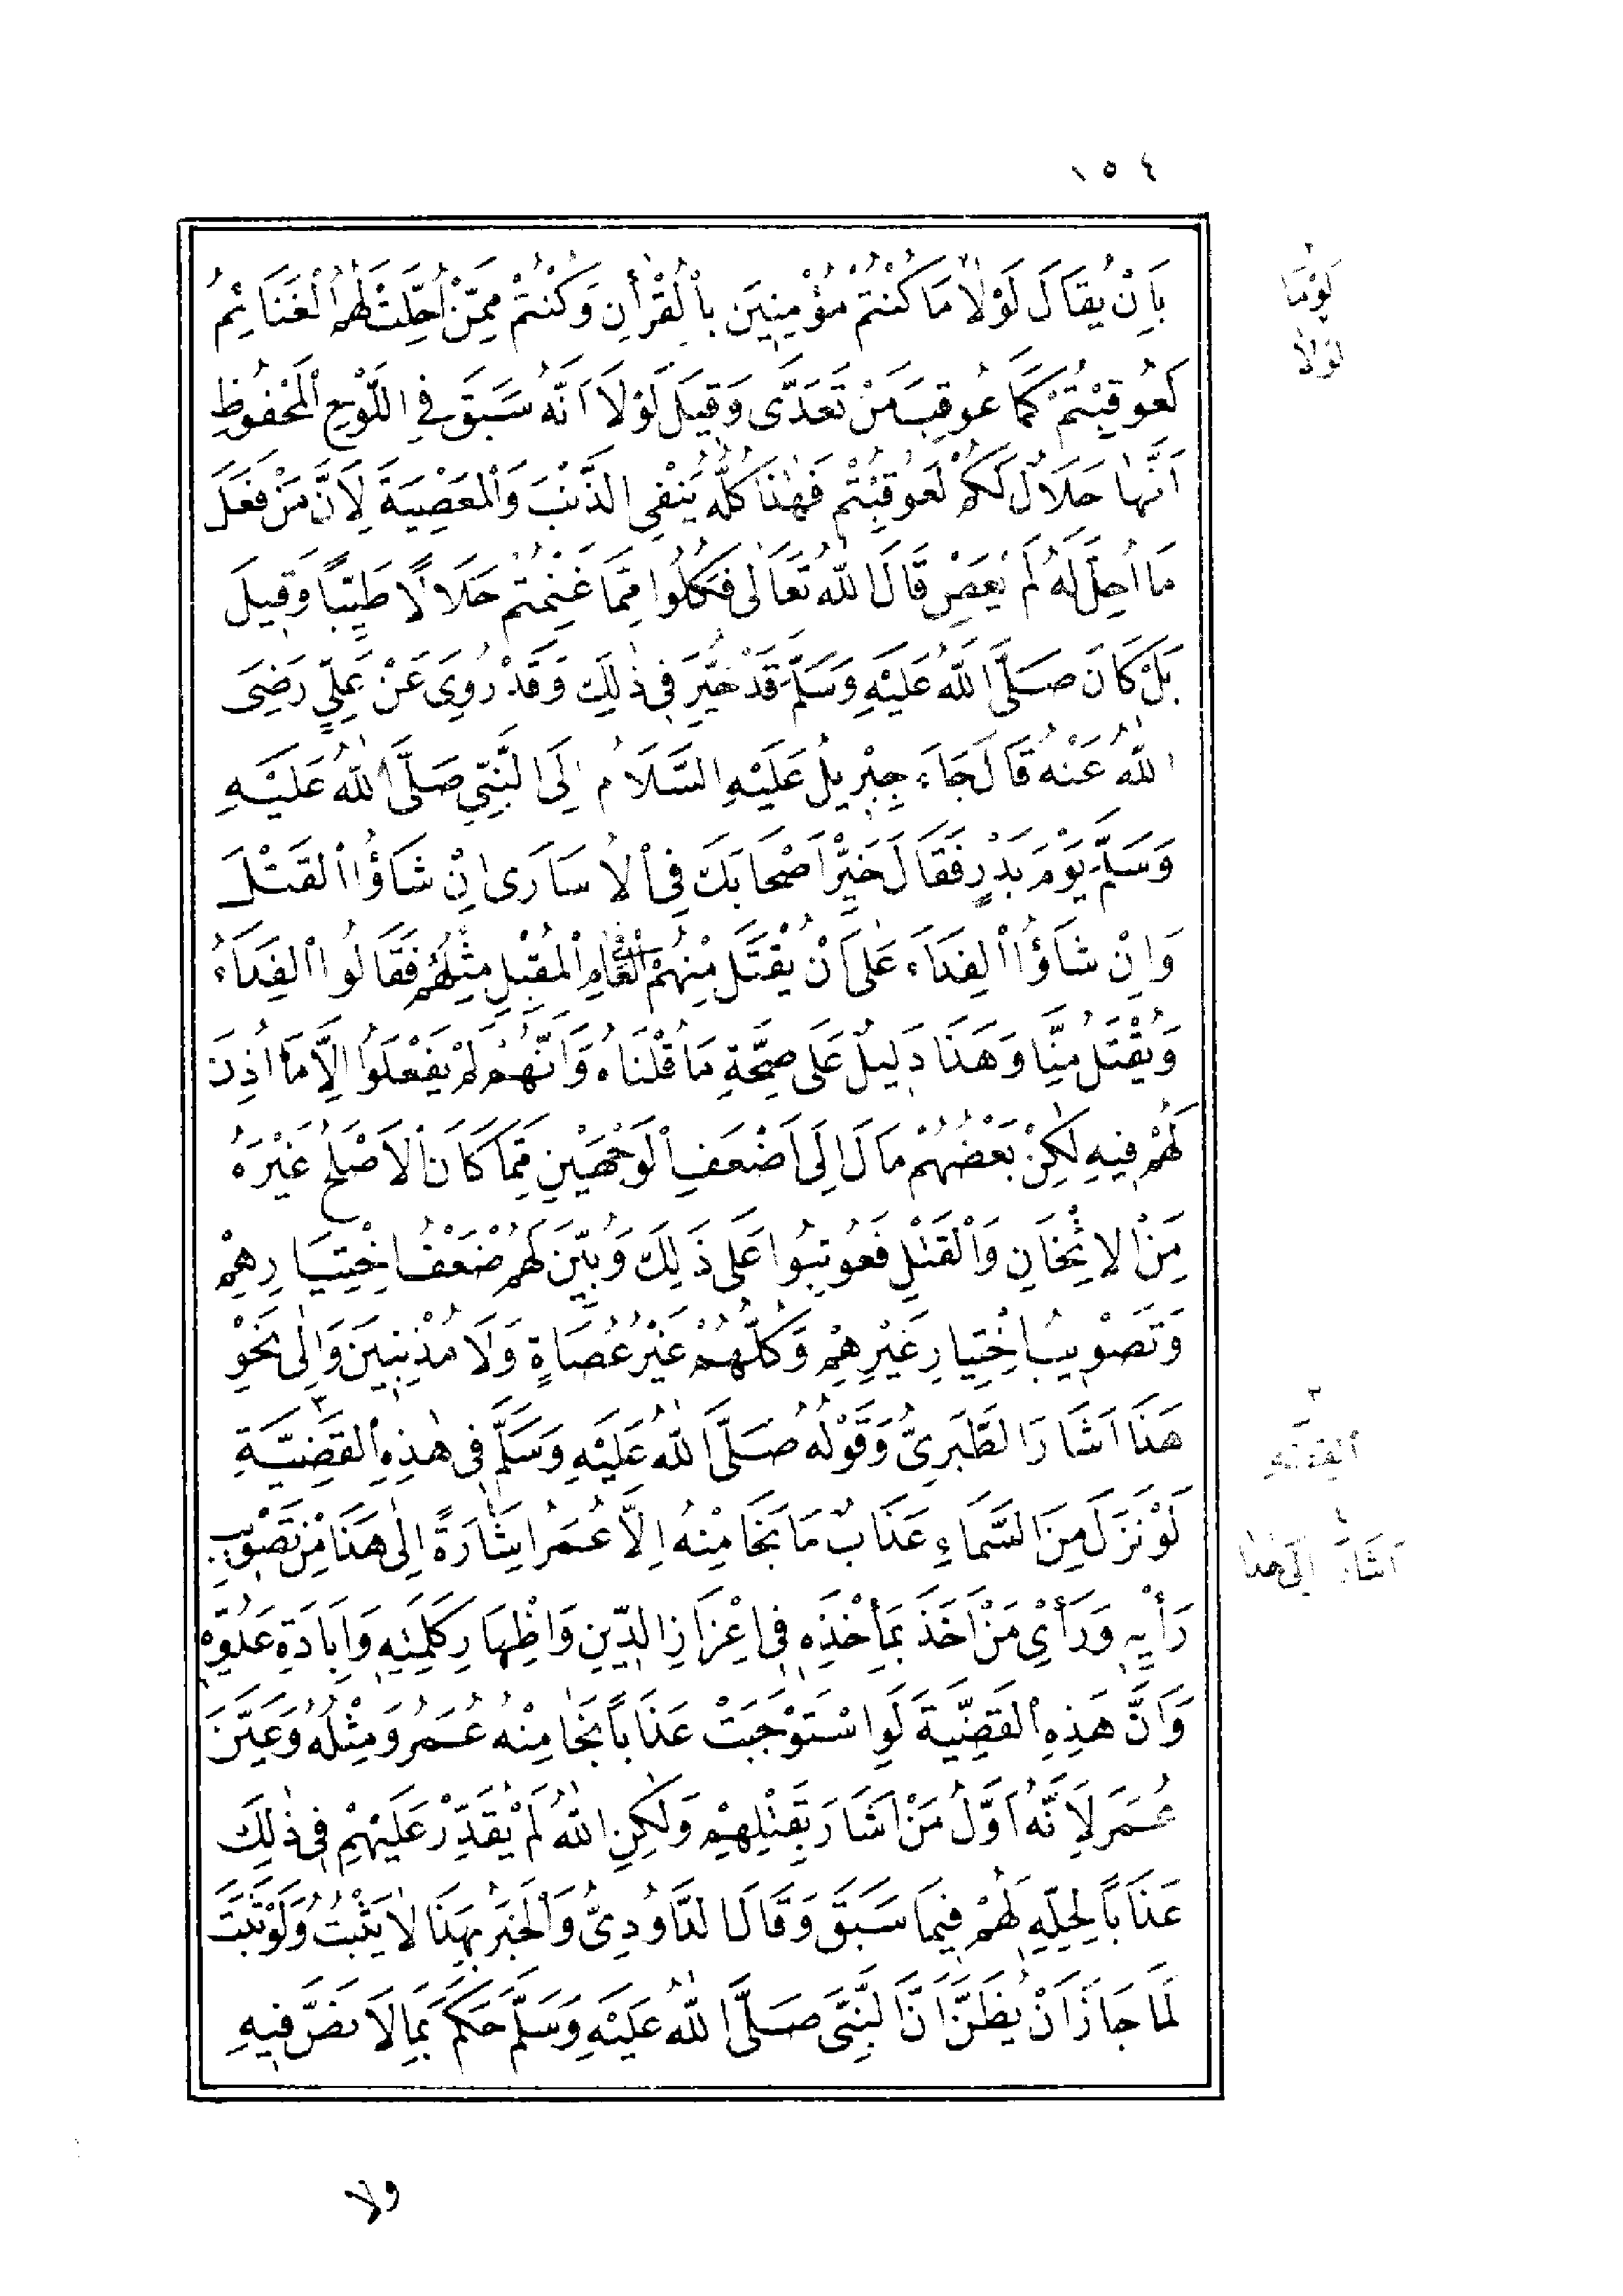 ١٥٤
بِاَنْ يُقَالَ لَوْلَا مَا كُنْتُمْ مُؤْمِنِينَ بِالْقُرْاٰنِ وَكُنْتُمْ مِمَّنْ اُحِلَّتْ لَهُمُ الْغَنَائِمُ
لَعُوقِبْتُمْ كَمَا عُوقِبَ مَنْ تَعَدَّى وَقِيلَ لَوْلَا اَنَّهُ سَبَقَ فِي اللَّوْحِ الْمَحْفُوظِ
اَنَّهَا حَلَالٌ لَكُمْ لَعُوقِبْتُمْ فَهٰذَا كُلُّهُ يَنْفِي الذَّنْبَ وَالْمَعْصِيَةَ لِاَنَّ مَنْ فَعَلَ
مَا اُحِلَّ لَهُ لَمْ يَعْصِ قَالَ اللّٰهُ تَعَالٰى فَكُلُوا مِمَّا غَنِمْتُمْ حَلَالًا طَيِّبًا وَقِيلَ
بَلْ كَانَ صَلَّى اللّٰهُ عَلَيْهِ وَسَلَّمَ قَدْ خُيِّرَ فِي ذٰلِكَ وَقَدْ رُوِيَ عَنْ عَلِيٍّ رَضِيَ
اللّٰهُ عَنْهُ قَالَ جَاءَ جِبْرِيلُ عَلَيْهِ السَّلَامُ اِلَى النَّبِيِّ صَلَّى اللّٰهُ عَلَيْهِ
وَسَلَّمَ يَوْمَ بَدْرٍ فَقَالَ خَيِّرْ اَصْحَابَكَ فِي الْاُسَارَى اِنْ شَاؤُا الْقَتْلَ
وَاِنْ شَاؤُا الْفِدَاءَ عَلٰى اَنْ يُقْتَلَ مِنْهُمْ الْعَامِ الْمُقْبِلِ مِثْلُهُمْ فَقَالُوا الْفِدَاءُ
وَيُقْتَلُ مِنَّا وَهَذَا دَلِيلٌ عَلَى صِحَّةِ مَا قُلْنَاهُ وَاَنَّهُمْ لَمْ يَفْعَلُوا اِلَّا مَا اُذِنَ
لَهُمْ فِيهِ لٰكِنْ بَعْضُهُمْ مَالَ اِلَى اَضْعَفِ الْوَجْهَيْنِ مِمَّا كَانَ الْاَصْلَحُ غَيْرَهُ
مِنَ الْاِثْخَانِ وَالْقَتْلِ فَعُوتِبُوا عَلَى ذٰلِكَ وَبُيِّنَ لَهُمْ ضَعْفُ اخْتِيَارِهِمْ
وَتَصْوِيبُ اخْتِيَارِ غَيْرِهِمْ وَكُلُّهُمْ غَيْرُ عُصَاةٍ وَلَا مُذْنِبِينَ وَاِلٰى نَحْوِ
هَذَا اَشَارَ الطَّبَرِيُّ وَقَوْلُهُ صَلَّى اللّٰهُ عَلَيْهِ وَسَلَّمَ فِي هٰذِهِ الْقَضِيَّةِ
لَوْ نَزَلَ مِنَ السَّمَاءِ عَذَابٌ مَا نَجَا مِنْهُ اِلَّا عُمَرُ اِشَارَةً اِلٰى هَذَا مِنْ تَصْوِيبِ
رَأْيِهِ وَرَأْيِ مَنْ اَخَذَ بِمَأْخَذِهِ فِي اِعْزَازِ الدِّينِ وَاِظْهَارِ كَلِمَتِهِ وَاِبَادَةِ عَدُوِّهِ
وَاَنَّ هَذِهِ الْقَضِيَّةَ لَوِ اسْتَوْجَبَتْ عَذَابًا نَجَا مِنْهُ عُمَرُ وَمِثْلُهُ وَعَيَّنَ
عُمَرَ لِاَنَّهُ اَوَّلُ مَنْ اَشَارَ بِقَتْلِهِمْ وَلٰكِنِ اللّٰهُ لَمْ يُقَدِّرْ عَلَيْهِمْ فِي ذٰلِكَ
عَذَابًا لِحِلِّهِ لَهُمْ فِيمَا سَبَقَ وَقَالَ الدَّاوُدِيُّ وَالْخَبَرُ بِهَذَا لَا يَثْبُتُ وَلَوْ ثَبَتَ
لَمَا جَازَ اَنْ يُظَنَّ اَنَّ النَّبِيَّ صَلَّى اللّٰهُ عَلَيْهِ وَسَلَّمَ حَكَمَ بِمَا لَا نَصَّ فِيهِ
٢
لَوْمَا
لَوْلَا
٣
٤
اَشَارَ اِلَى هَذَا
ولا